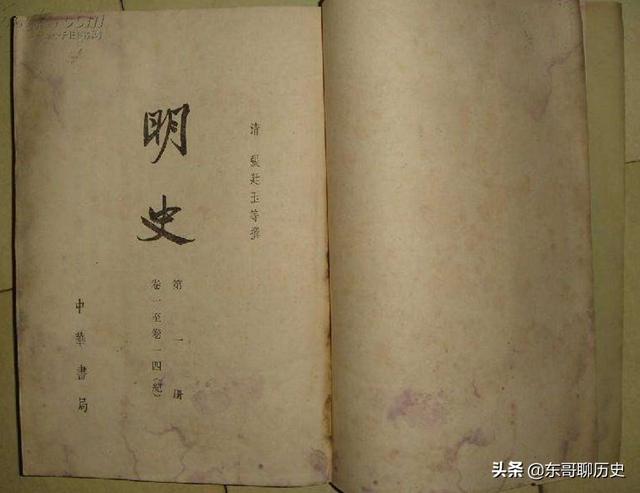 清 張廷玉等撰
明史
第一册
卷一至卷一四(紀)
中華書局
头条 @东哥聊历史